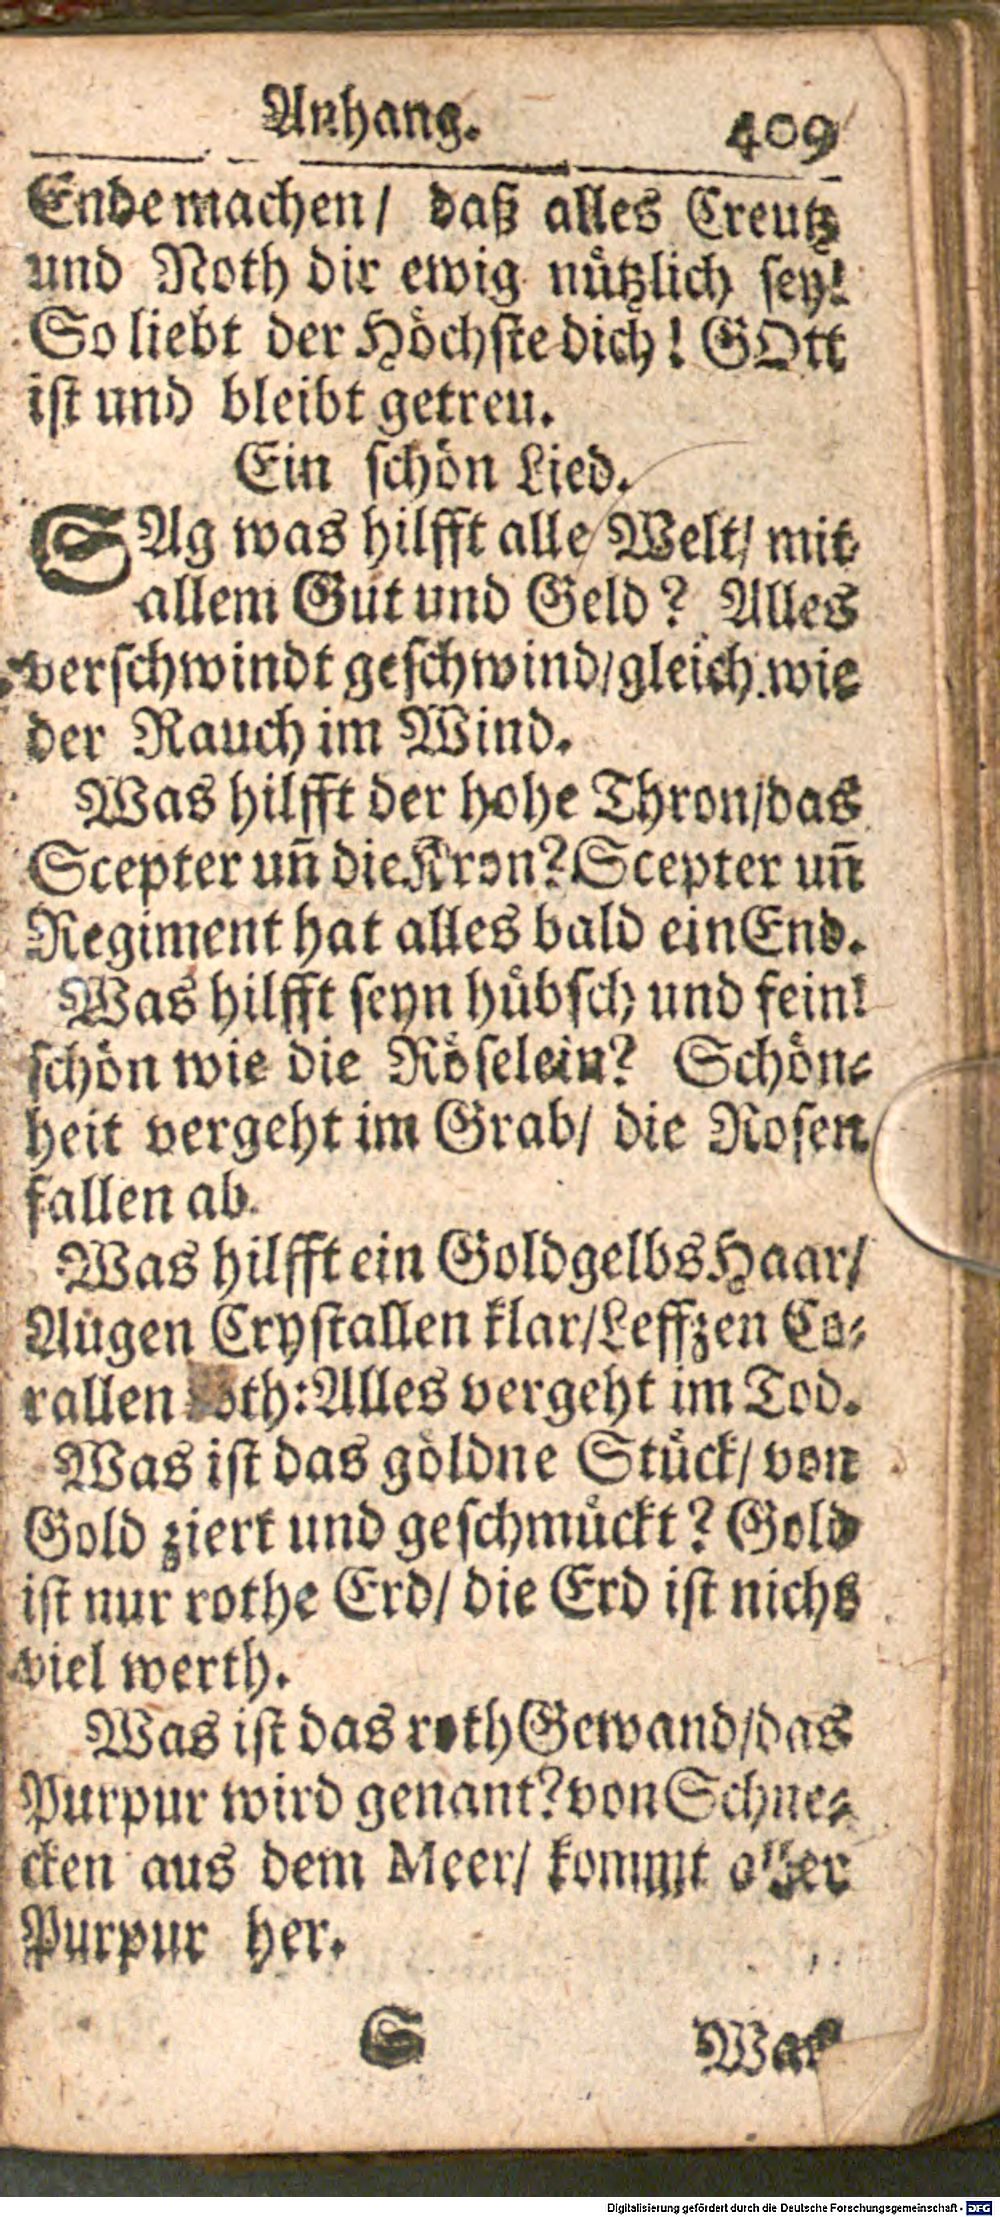 Anhang. 409
Ende machen/ daß alles Creutz
und Noth dir ewig nützlich sey!
So liebt der Höchste dich! GOtt
ist und bleibt getreu.
Ein schön Lied.
SAg was hilfft alle Welt/ mit
allem Gut und Geld? Alles
verschwindt geschwind/gleich wie
der Rauch im Wind.
Was hilfft der hohe Thron/das
Scepter uñ die Kron? Scepter uñ
Regiment hat alles bald ein End.
Was hilfft seyn hübsch und fein!
schön wie die Röselein? Schön-
heit vergeht im Grab/ die Rosen
fallen ab.
Was hilfft ein Goldgelbs Haar/
Augen Crystallen klar/Leffzen Co-
rallen roth: Alles vergeht im Tod.
Was ist das göldne Stück/ von
Gold ziert und geschmückt? Gold
ist nur rothe Erd/ die Erd ist nichs
viel werth.
Was ist das roth Gewand/das
Purpur wird genant? von Schne-
cken aus dem Meer/ kommt aller
Purpur her.
S Was
Digitalisierung gefördert durch die Deutsche Forschungsgemeinschaft - DFG